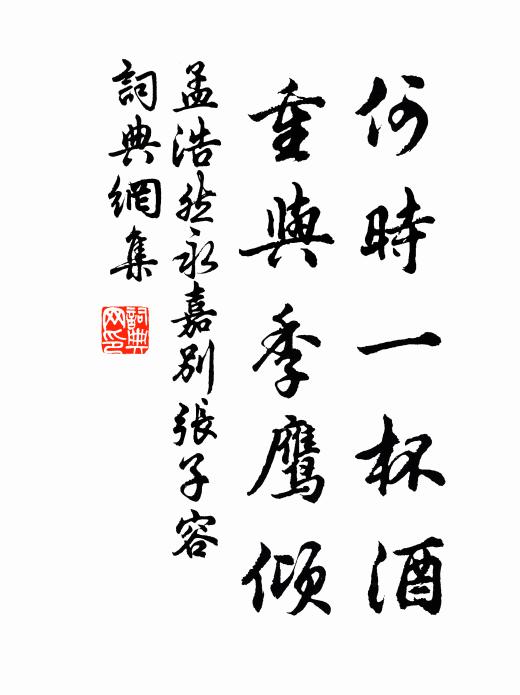 何時一杯酒
重與季鷹傾
孟浩然永嘉別張子容
詞典網集
詞典网印